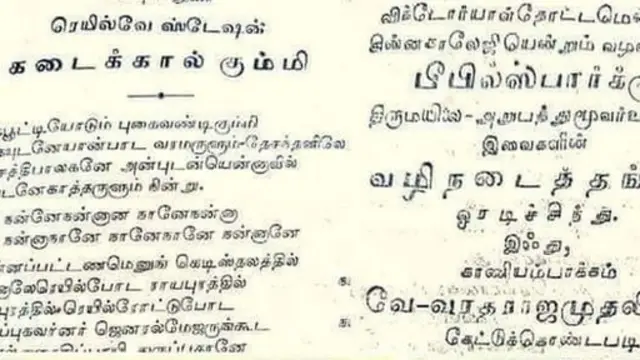 ரெயில்வே ஸ்டேஷன்
கடைக்கால் கும்மி
பூட்டியோடும் புகைவண்டிகும்மி
வாமருளும்-தேசந்தனிலே
த்திபாலகனே அன்புடன்யென்னாவில்
டனேகாத்தருளும் கின்று.
நன்னேநன்னான நானேநன்னா
நன்னாநானே நானேநானே நன்னானே
னப்பட்டணமெனுங் கெடிஸ்தலத்தில்
லேரெயில்போட ராயபுரத்தில்
புரத்தில்ரெயில்ரோட்டுபோட
ப்புகவர்னர் ஜெனரல்மேஜருங்கூட
விக்டோர்யாள்தோட்டமெ
யென்றும் வழ
பீபில்ஸ்பார்க்கு
திருமயிலை-அறுபத்துமூவர்
இவைகளின்
வழிநடைத்த
ஓரடிச்சிந்து.
இஃது,
காணியம்பாக்கம்
வே-வரதராஜமுதலி
கேட்டுக்கொண்டபடி